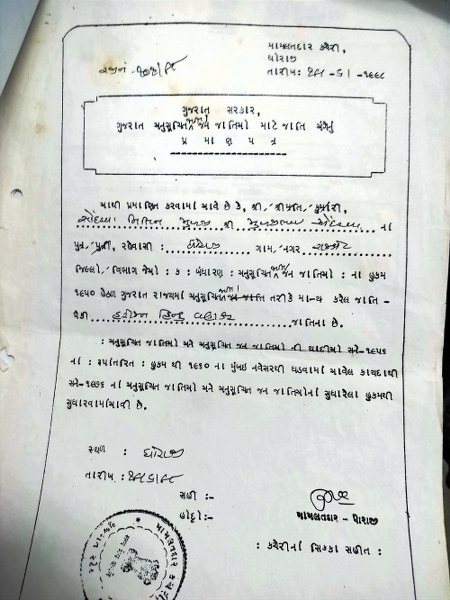 મામલતદાર કચેરી,
ધોરાજી
તારીખ: -૬-૧૯૯૮
ગુજરાત સરકાર,
ગુજરાત અનુસૂચિત જન જાતિઓ માટે જાતિ અંગેનું
પ્ર મા ણ પ ત્ર
આથી પ્રમાણિત કરવામાં આવે છે કે, શ્રી/શ્રીમતિ/કુમારી,
શ્રી ના
પુત્ર/પુત્રી, રહેવાસી : ધોરાજી ગામ/નગર રાજકોટ
જિલ્લો/વિભાગ જેઓ : ક : બંધારણ : અનુસૂચિત જન જાતિઓ : ના હુકમ
૧૯૫૦ હેઠળ ગુજરાત રાજ્યમાં અનુસૂચિત જન જાતિ તરીકે માન્ય કરેલ જાતિ -
પૈકી હિન્દુ જાતિના છે.
: અનુસૂચિત જાતિઓ અને અનુસૂચિત જન જાતિઓ ની યાદીઓ સને-૧૯૫૬
ના : રૂપાંતરિત : હુકમ થી ૧૯૬૦ ના મુંબઇ નવેસરથી ઘડવામાં આવેલ કાયદાથી
સને-૧૯૭૬ નાં અનુસૂચિત જાતિઓ અને અનુસૂચિત જન જાતિઓનાં સુધારેલા હુકમથી
સુધારવામાં આવી છે.
સ્થળ : ધોરાજી
તારીખ :
સહી :-
હોદ્દો:-
મામલતદાર - ધોરાજી
: કચેરીનાં સિક્કા સહીત :
મામલતદાર કચેરી